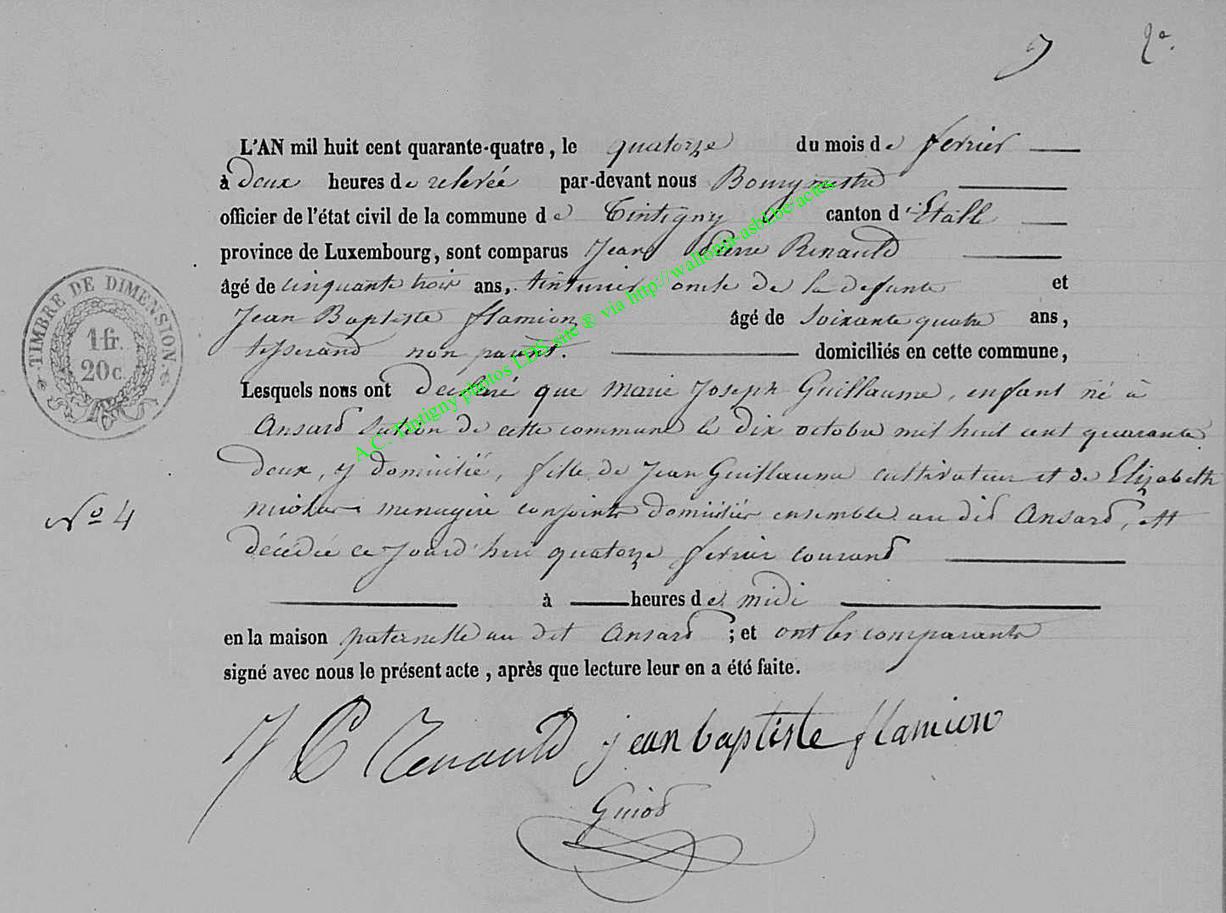 9 2e.
L'AN mil huit cent quarante-quatre, le quatorze du mois de fevrier
à deux heures de relevée par-devant nous Bourgmestre
officier de l'état civil de la commune de Tintigny canton d'Etalle
province de Luxembourg, sont comparus Jean Pierre Renauld
âgé de cinquante trois ans, tinturier oncle de la defunte et
Jean Baptiste flamion âgé de soixante quatre ans,
tisserand non parent. domiciliés en cette commune,
Lesquels nous ont declaré que Marie Joseph Guillaume, enfant né à
Ansard section de cette commune le dix octobre mil huit cent quarante
deux, y domicilié, fille de Jean Guillaume cultivateur et de Elizabeth
nicolas menagere conjoints domiciliés ensemble au dit Ansard, est
décédée ce jourd'hui quatorze fevrier courant
à heures de midi
en la maison paternelle au dit Ansard ; et ont les comparants
signé avec nous le présent acte, après que lecture leur en a été faite.
J P Renauld jean baptiste flamion
Guiod
TIMBRE DE DIMENSION
1 fr.
20 c.
No 4
A.C. Tintigny photos LDS site ® via http://wallonia-asbl.be/actes